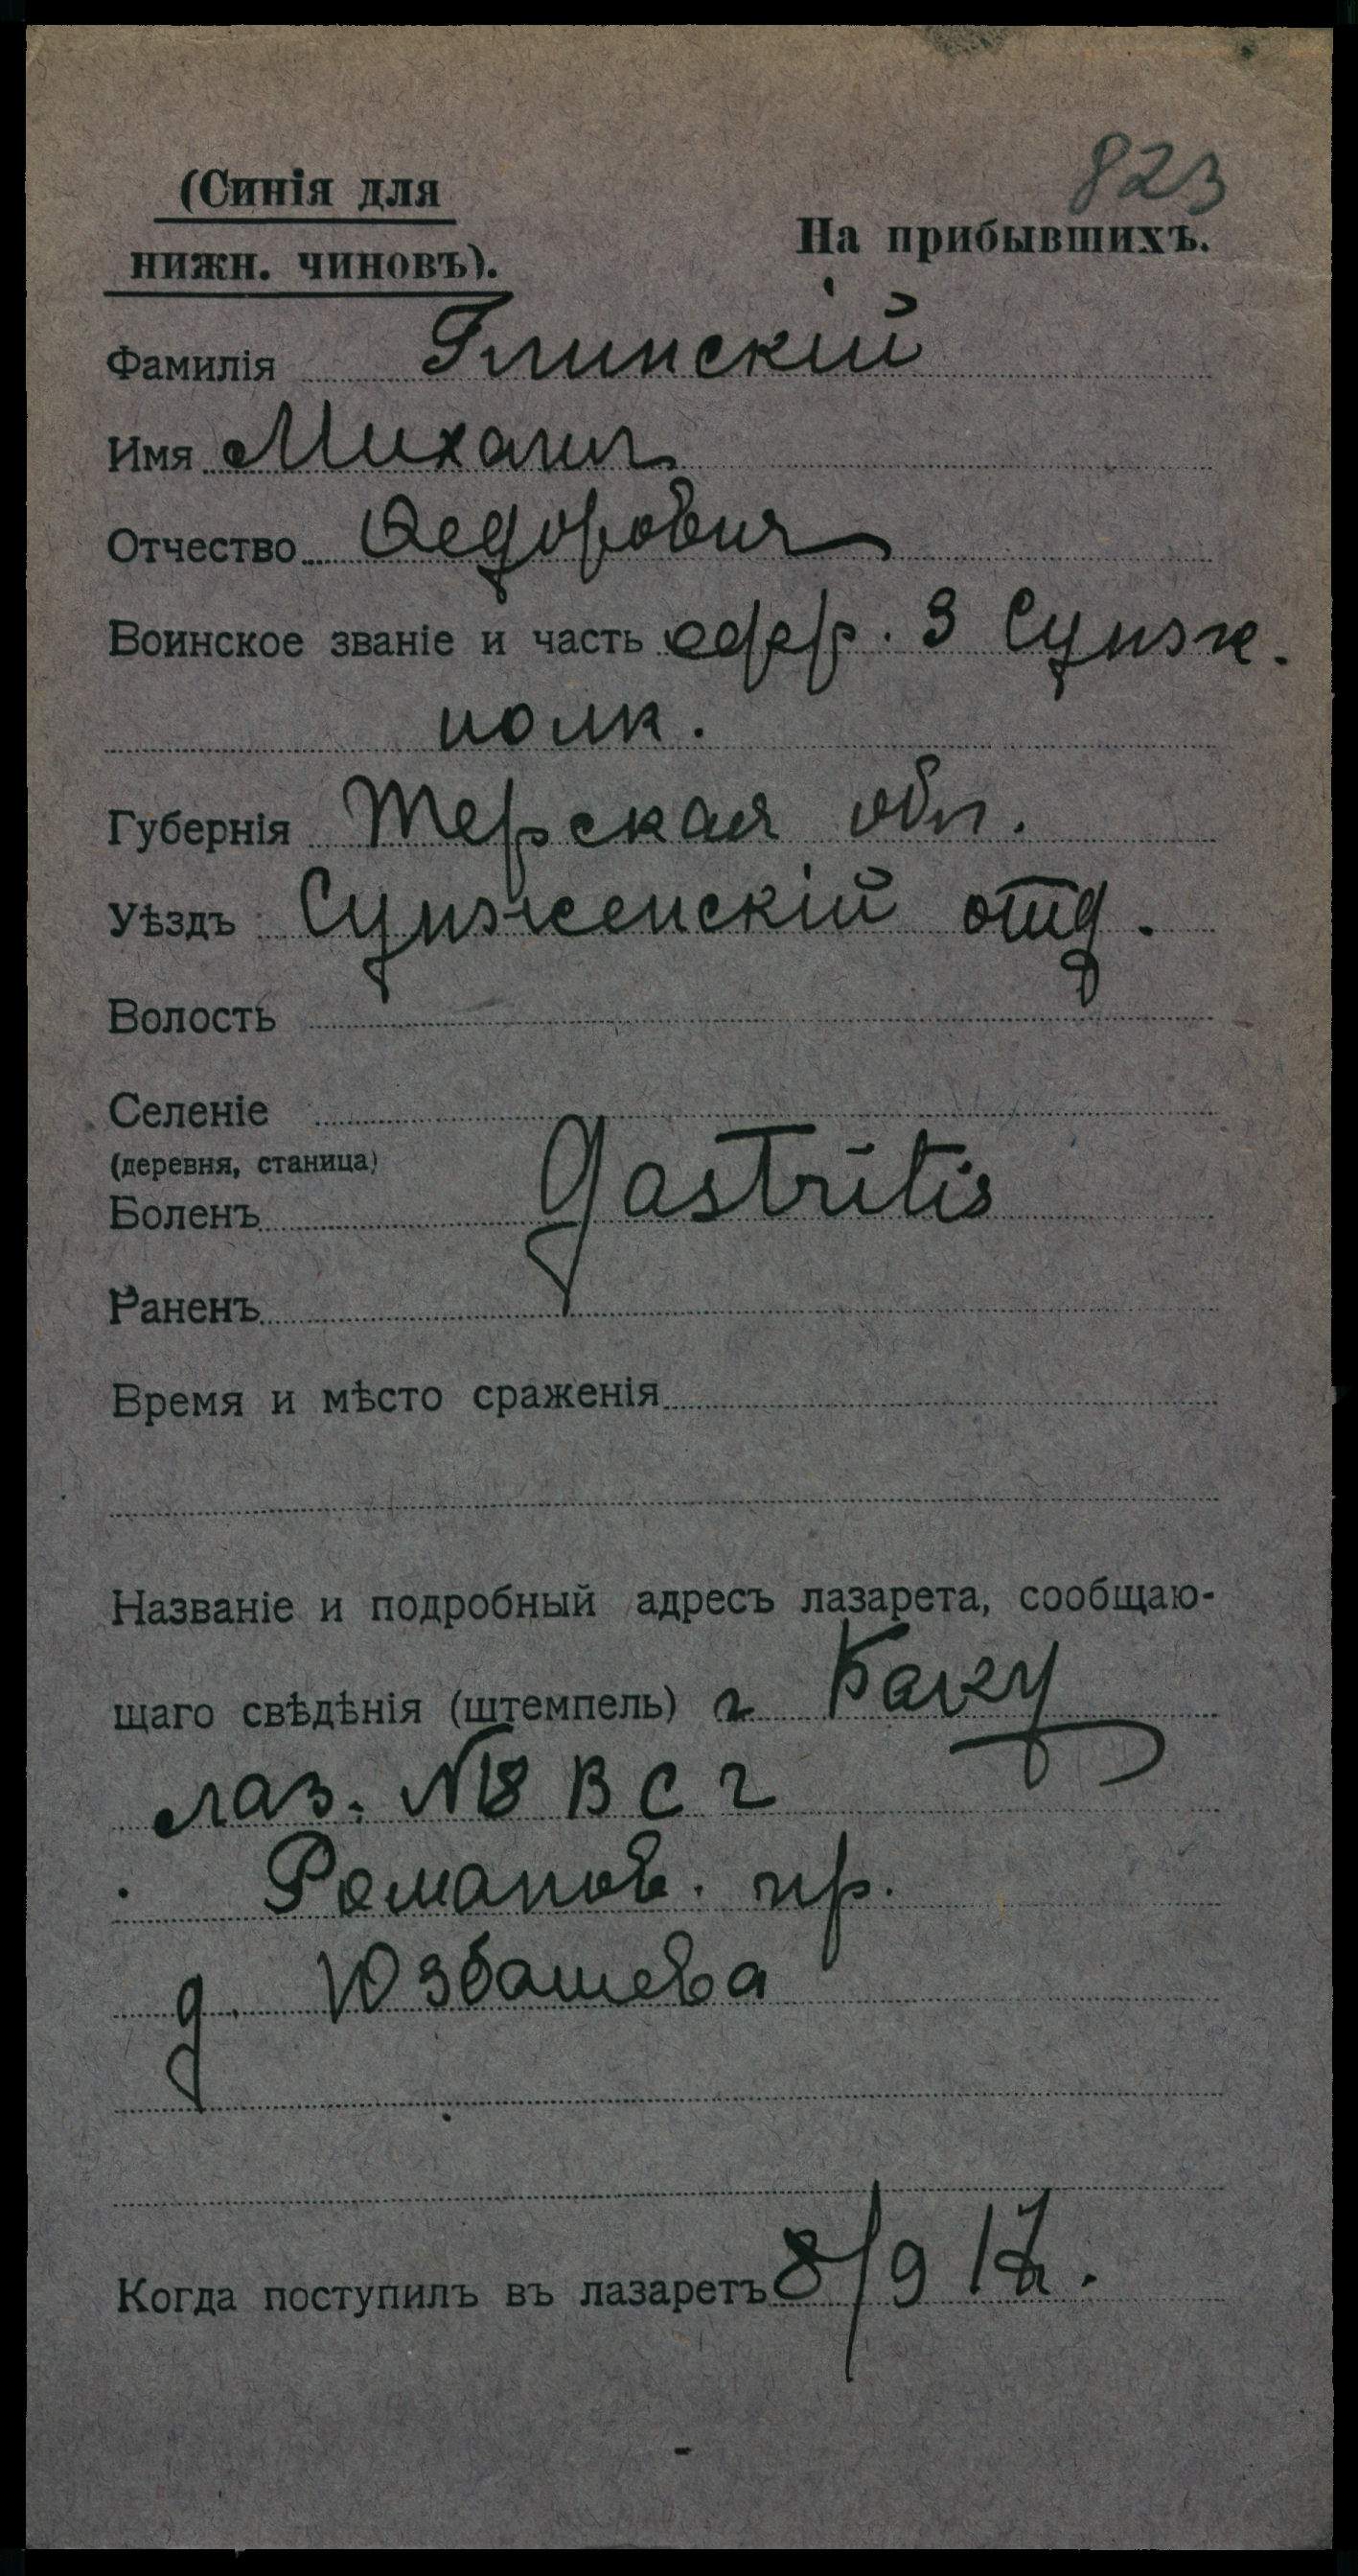 823
(Синія для
нижн. чиновъ).
На прибывшихъ.
Фамилія Глинскій
Имя Михаил
Отчество Федорович
Воинское званіе и часть ефр. 3 Сунж.
полк.
Губернія Терская обл.
Уѣздъ Сунженскій отд.
Волость
Селеніе
(деревня, станица)
Боленъ gastritis
Раненъ
Время и мѣсто сраженія
Названіе и подробный адресъ лазарета, сообщаю-
щаго свѣдѣнія (штемпель) г Баку
лаз. №18 В С Г
Романов. пр.
д. Юзбашева
Когда поступилъ въ лазаретъ 8/9 17.